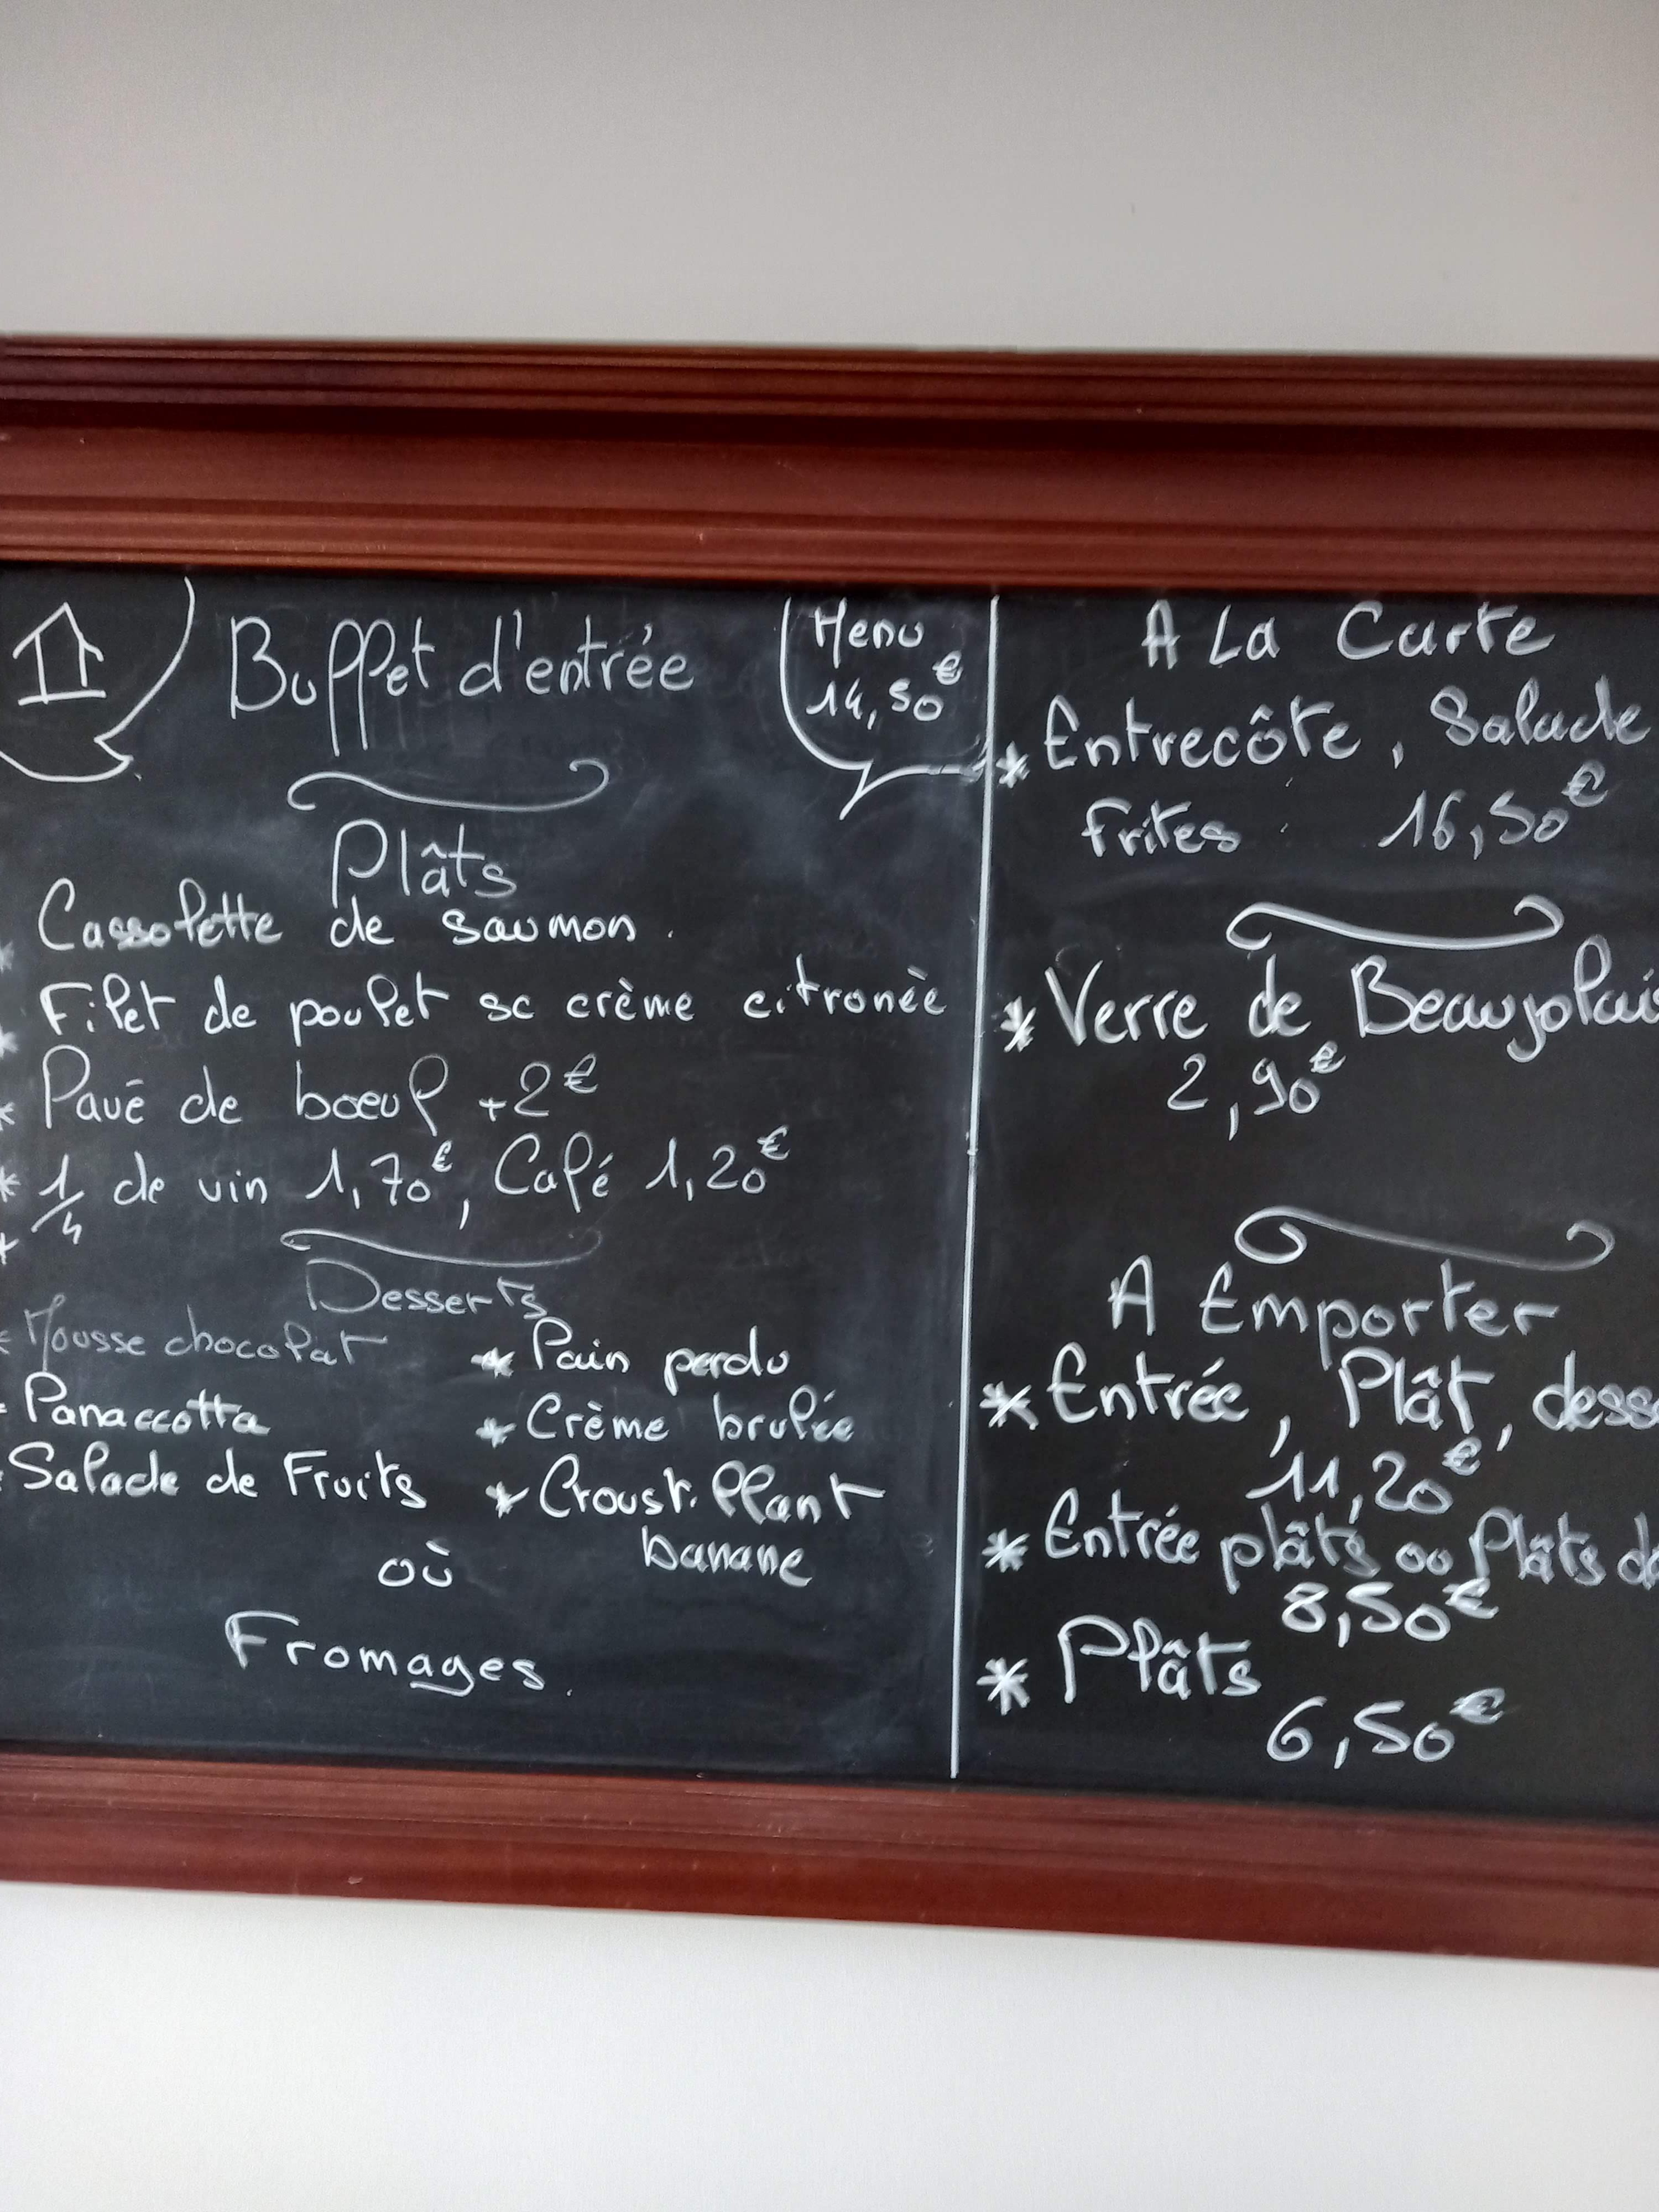 Buffet d'entrée
Menu
14,50€
Plâts
* Cassolette de saumon.
* Filet de poulet sc crème citronèe
* Pavé de bœuf +2€
* 1/4 de vin 1,70€, Café 1,20€
*
Desserts
* Mousse chocolat
* Panaccotta
* Salade de Fruits
* Pain perdu
* Crème brulée
* Croustillant
banane
où
Fromages.
A La Carte
* Entrecôte, Salade
frites 16,50€
* Verre de Beaujolais
2,90€
A Emporter
* Entrée, Plât, dess
11,20€
* Entrée plâts ou Plâts de
8,50€
* Plâts
6,50€